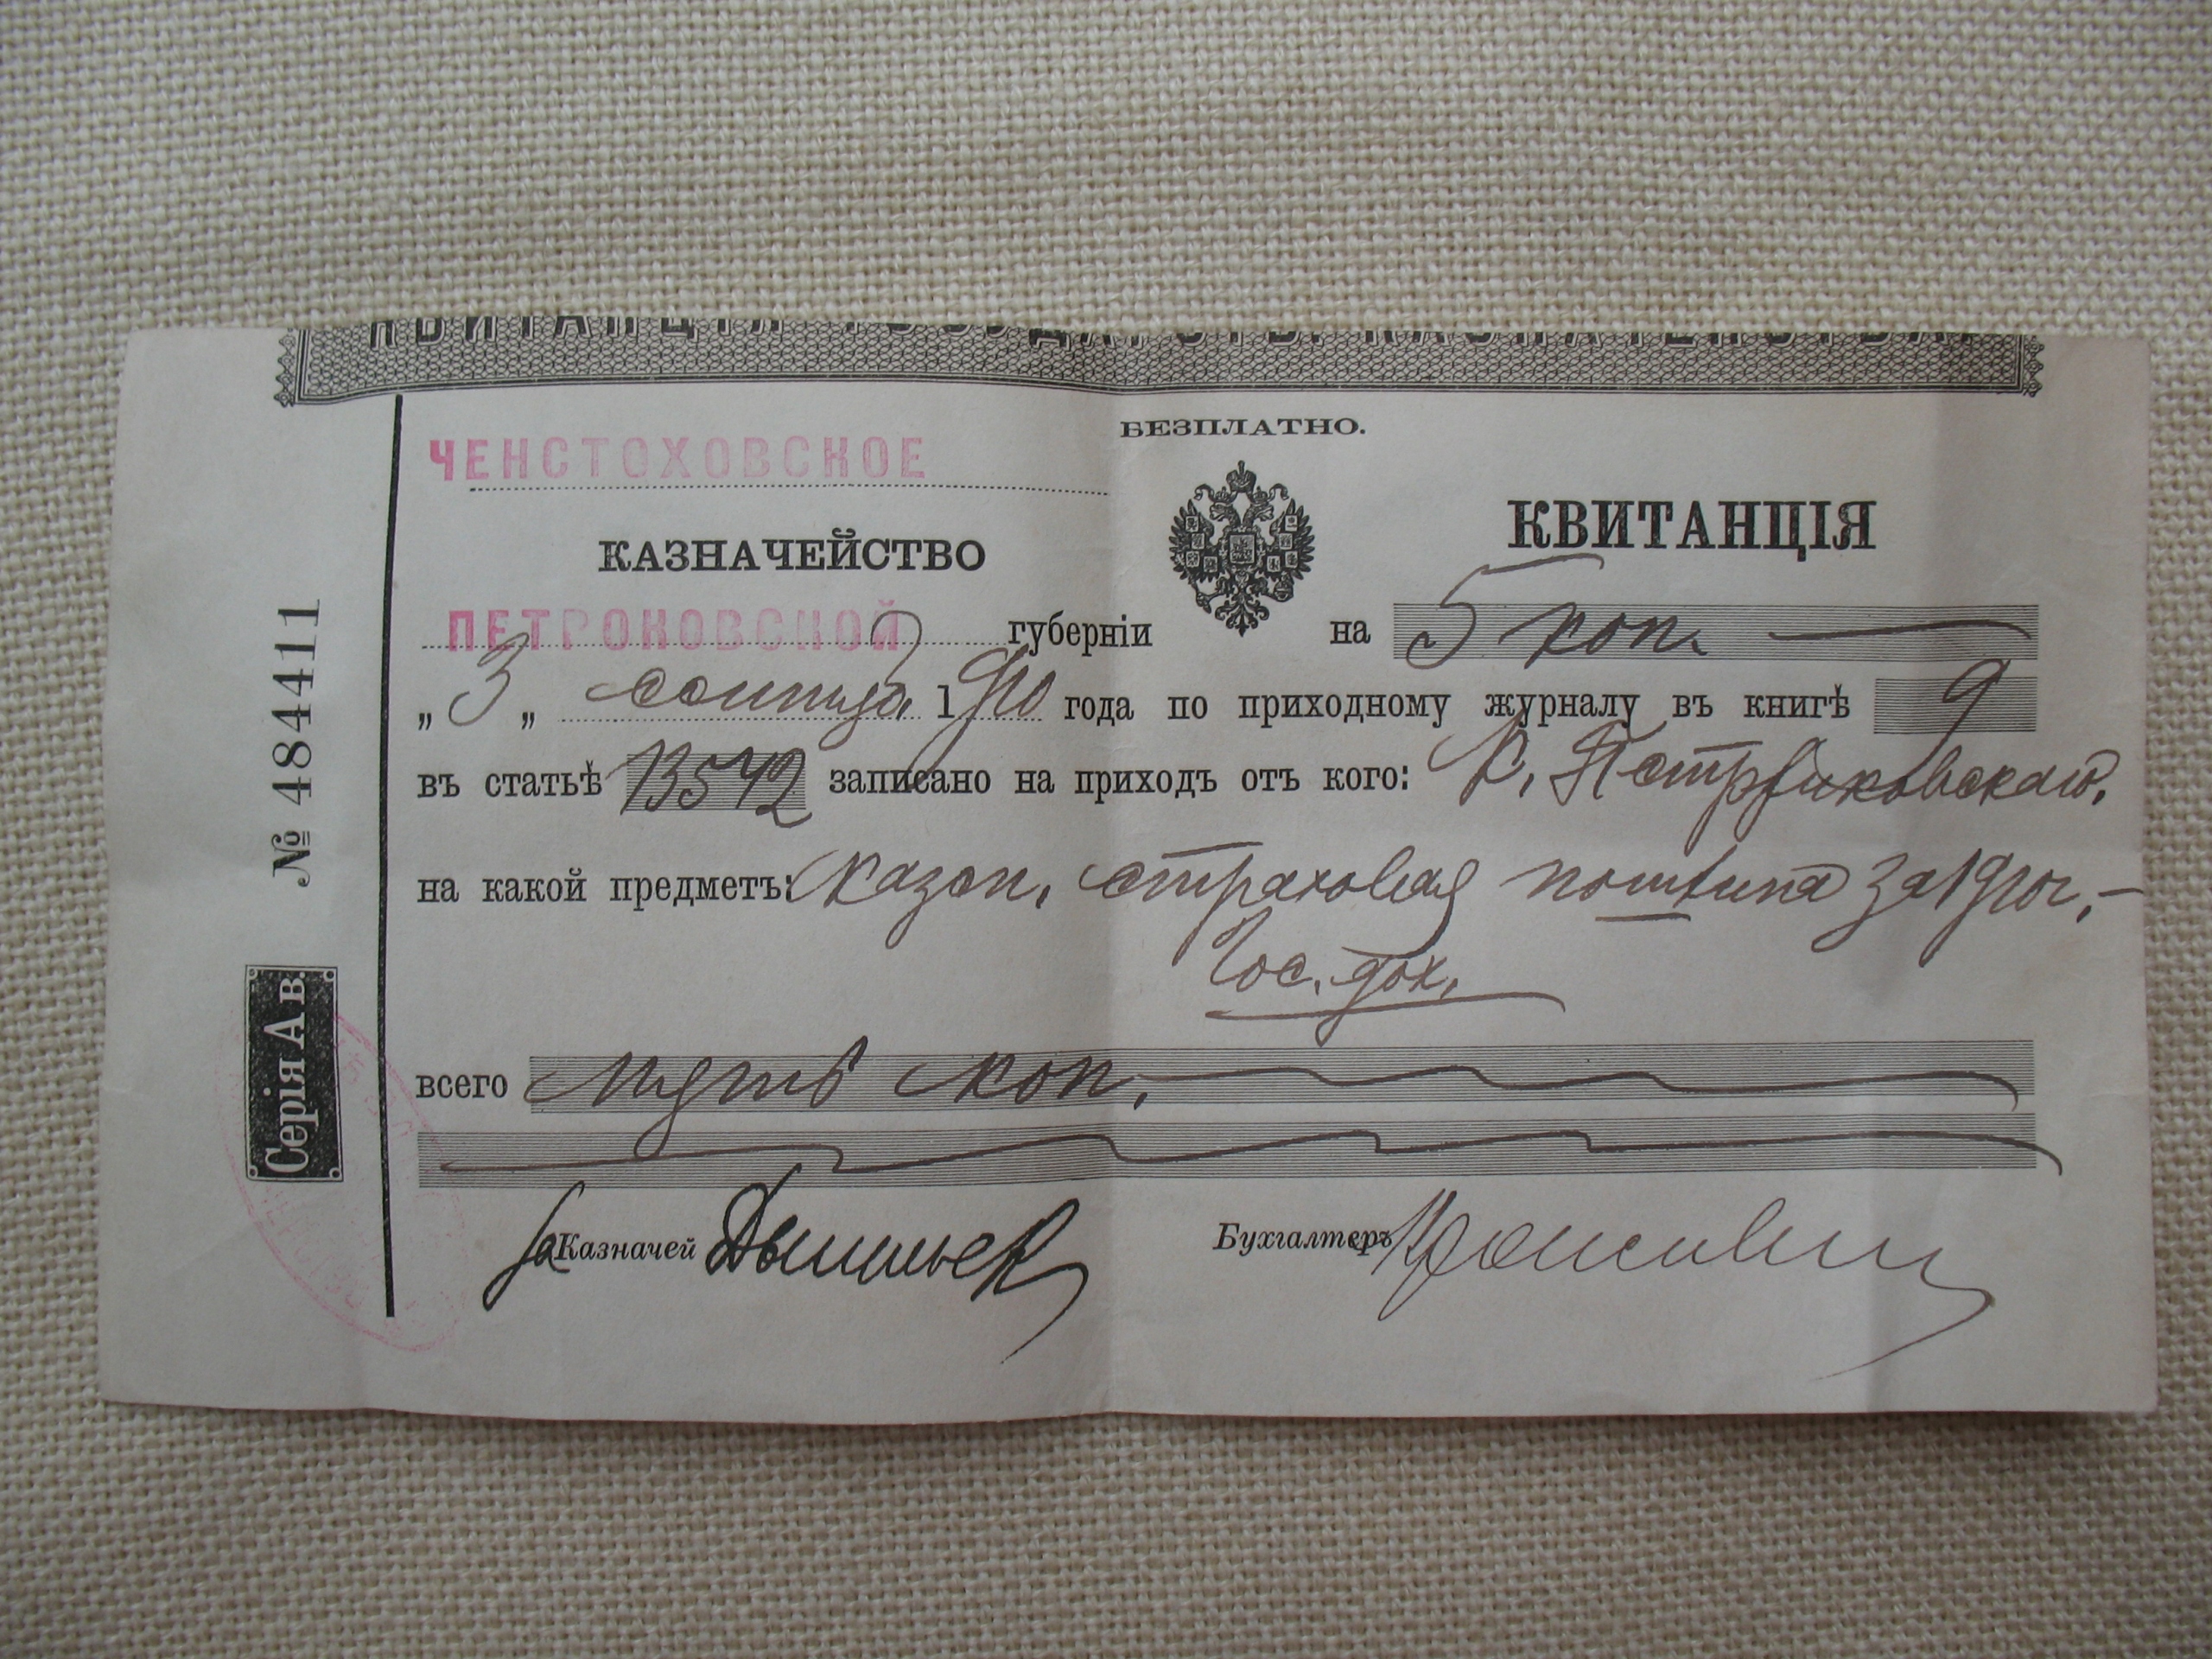 КВИТАНЦІЯ ГОСУДАРСТВ. КАЗНАЧЕЙСТВА
БЕЗПЛАТНО.
ЧЕНСТОХОВСКОЕ
КАЗНАЧЕЙСТВО
КВИТАНЦІЯ
ПЕТРОКОВСКОЙ губерніи на 5 коп.
„ 3 „ сентяб. 1910 года по приходному журналу въ книгѣ 9
въ статьѣ 13542 записано на приходъ отъ кого: К.
на какой предметъ: казен. страховая пошлина за 1910 г.
Гос. дох.
всего пять коп.
за Казначей
Бухгалтеръ
№ 484411
Серія А в.